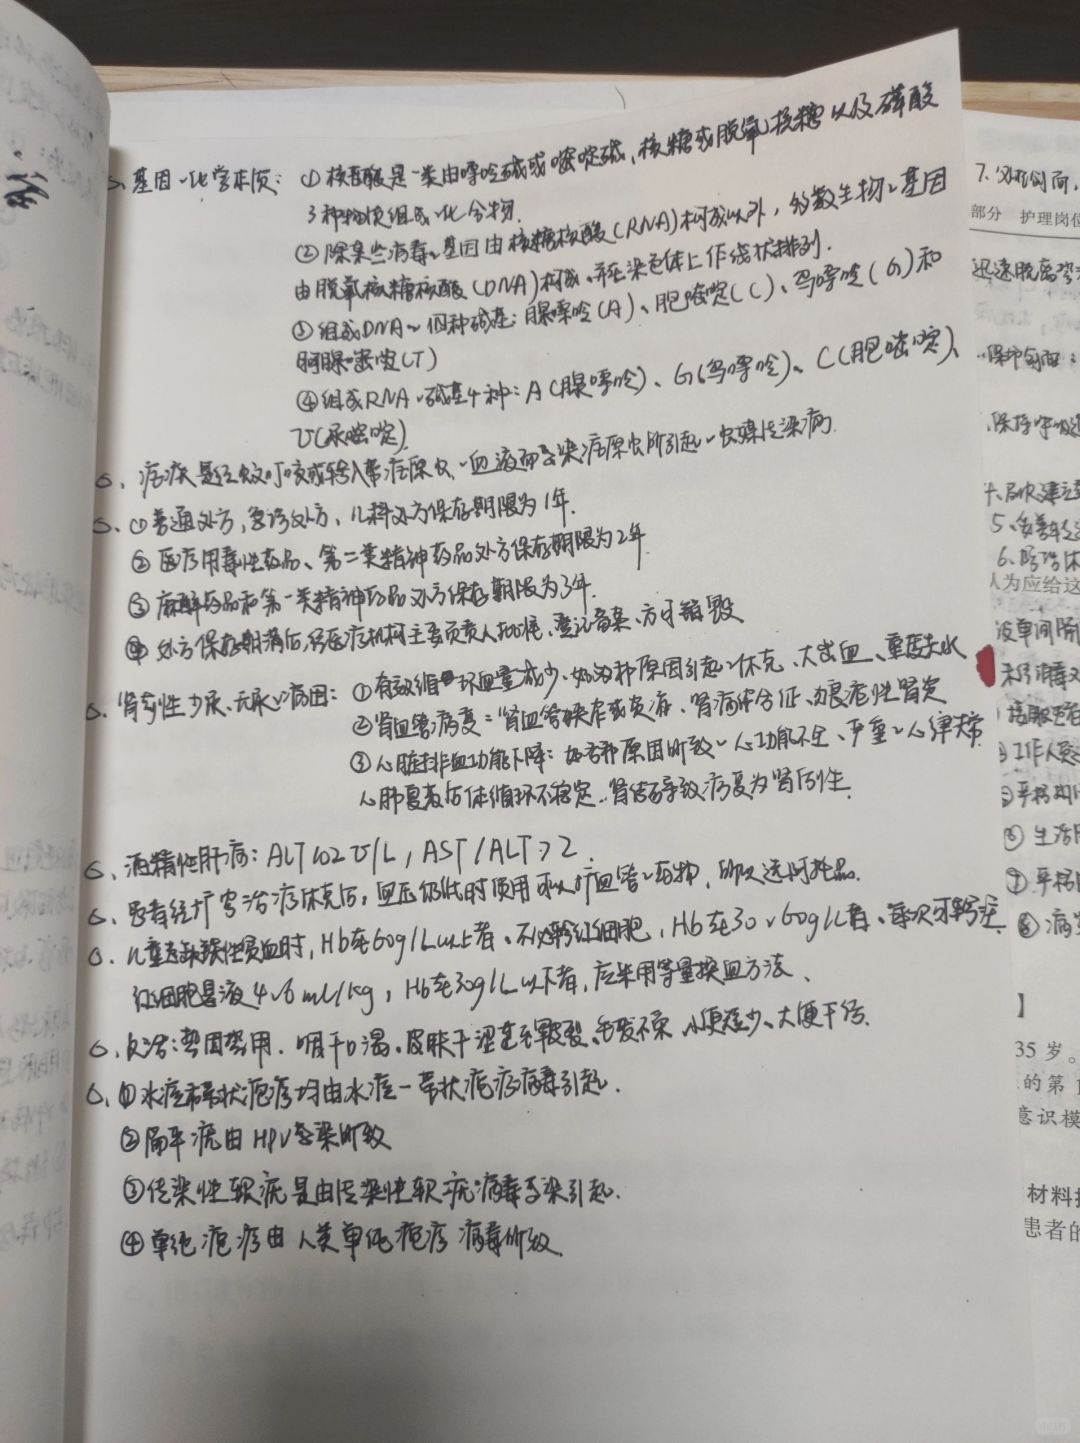 基因~化学本质: ① 核苷酸是一类由嘌呤碱或嘧啶碱、核糖或脱氧核糖以及磷酸
3种物质组成~化合物.
② 除某些病毒~基因由核糖核酸(RNA)构成以外,多数生物~基因
由脱氧核糖核酸(DNA)构成,并在染色体上作线状排列.
③组成DNA~四种碱基:腺嘌呤(A)、胞嘧啶(C)、鸟嘌呤(G)和
胸腺嘧啶(T)
④组成RNA~碱基4种:A(腺嘌呤)、G(鸟嘌呤)、C(胞嘧啶)、
U(尿嘧啶)
疟疾是经蚊叮咬或输入带疟原虫~血液而感染疟原虫所引起~虫媒传染病.
①普通处方,急诊处方,儿科处方保存期限为1年.
②医疗用毒性药品、第二类精神药品处方保存期限为2年
③麻醉药品和第一类精神药品处方保存期限为3年.
④处方保存期满后,经医疗机构主要负责人批准、登记备案、方可销毁
肾前性少尿、无尿~病因: ①有效循环血量减少:如各种原因引起~休克、大出血、重度失水
②肾血管病变:肾血管狭窄或炎症、肾病综合征、恶性肾炎
③心脏排血功能下降:如各种原因所致~心功能不全、严重~心律失常
心肺复苏后体循环不稳定.肾结石导致病变为肾后性.
酒精性肝病: ALT 102 U/L, AST/ALT>2.
患者经扩容治疗休克后,血压仍低时使用可以扩血管~药物,
儿童缺铁性贫血时,Hb在60g/L以上者、不必输红细胞,Hb在30~60g/L者、每次可输注
红细胞悬液4~6ml/kg,Hb在30g/L以下者,应采用等量换血方法、
反治:热因热用.咽干口渴、皮肤干涩甚至皲裂、毛发不荣、小便短少、大便干结.
①水痘和带状疱疹均由水痘-带状疱疹病毒引起.
②扁平疣由HPV感染所致
③传染性软疣是由传染性软疣病毒感染引起.
④单纯疱疹由人类单纯疱疹病毒所致
部分 护理岗位
迅速脱离
1.保护创面:
6.
人为应给这
⑥ 生活
⑧ 病
】
35 岁。
的第
意识模
材料
患者的